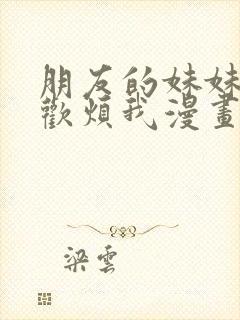 朋友的妹妹
歡煩我漫畫
梁雲